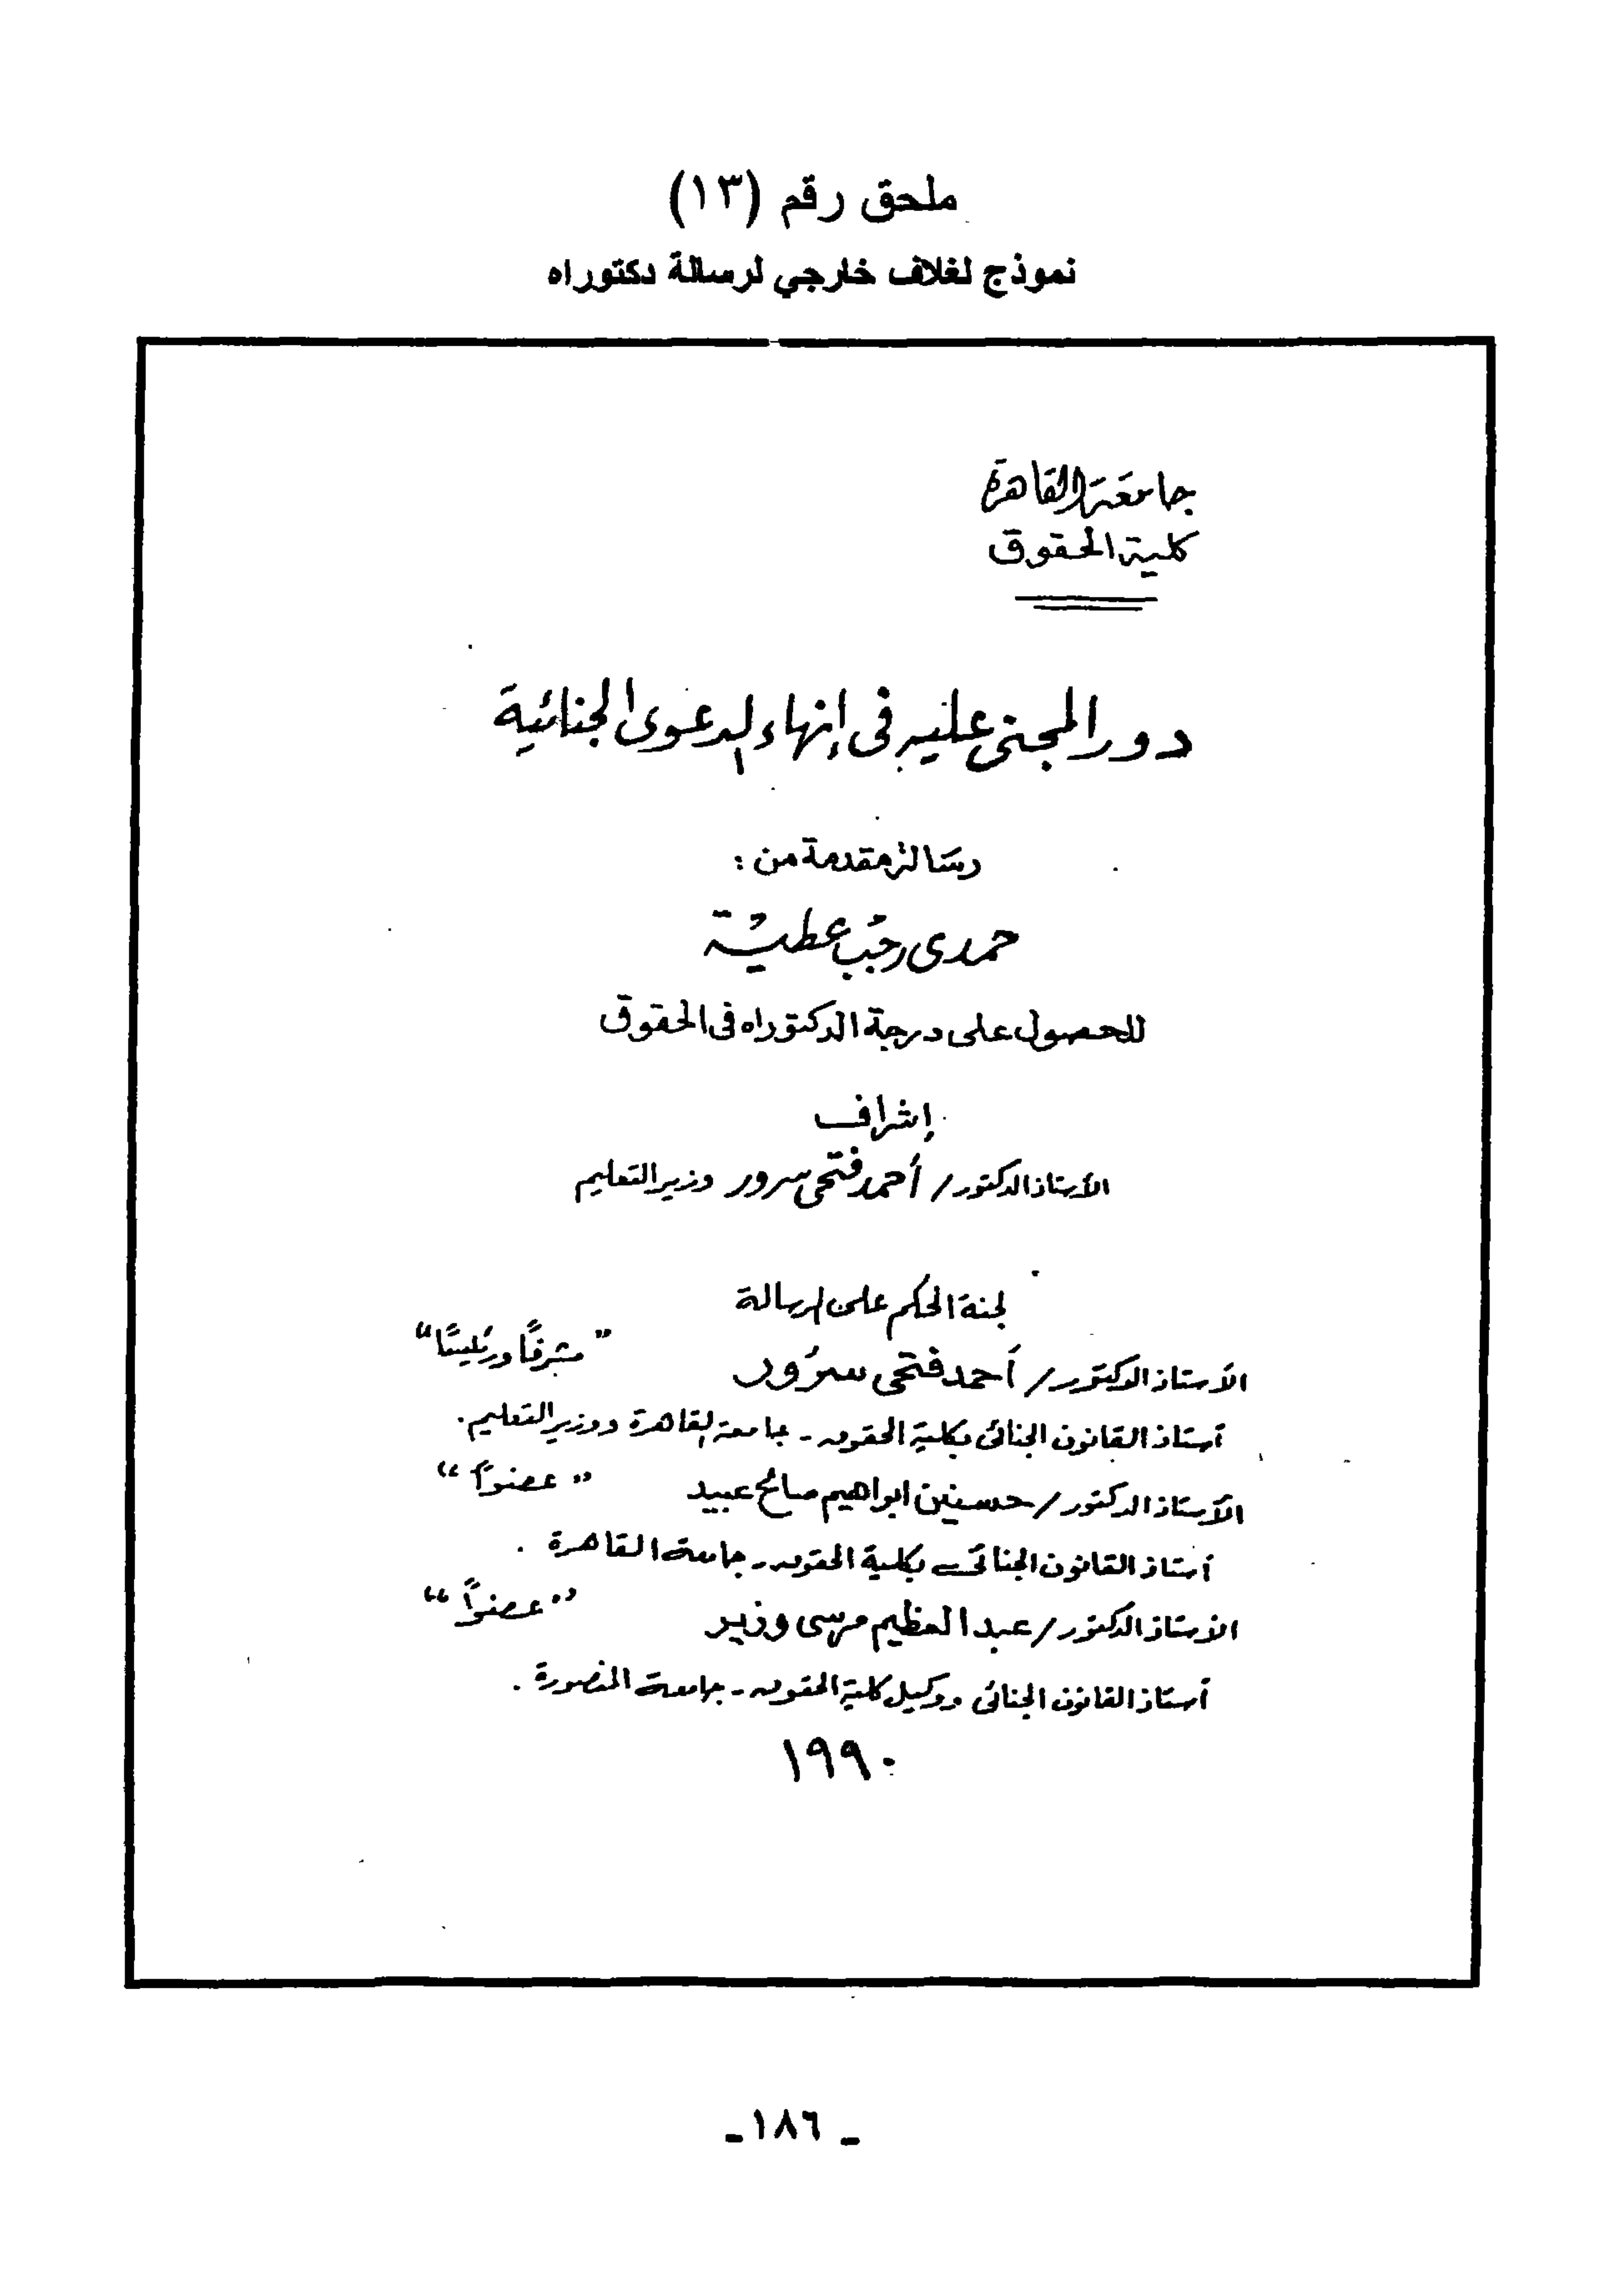 ملحق رقم (١٣)
نموذج لغلاف خارجي لرسالة دكتوراه
جامعة القاهرة
كلية الحقوق
دور المجنى عليه فى إنهاء الدعوى الجنائية
رسالة مقدمة من :
حمدى رجب عطية
للحصول على درجة الدكتوراه فى الحقوق
إشراف
الأستاذ الدكتور / أحمد فتحى سرور وزير التعليم
لجنة الحكم على الرسالة
الأستاذ الدكتور / أحمد فتحى سرور " مشرفًا ورئيسًا "
أستاذ القانون الجنائى بكلية الحقوق - جامعة القاهرة ووزير التعليم .
الأستاذ الدكتور / حسنين ابراهيم صالح عبيد " عضوًا "
أستاذ القانون الجنائى بكلية الحقوق - جامعة القاهرة .
الأستاذ الدكتور / عبد العظيم مرسى وزير " عضوًا "
أستاذ القانون الجنائى ووكيل كلية الحقوق - جامعة المنصورة .
١٩٩٠
- ١٨٦ -